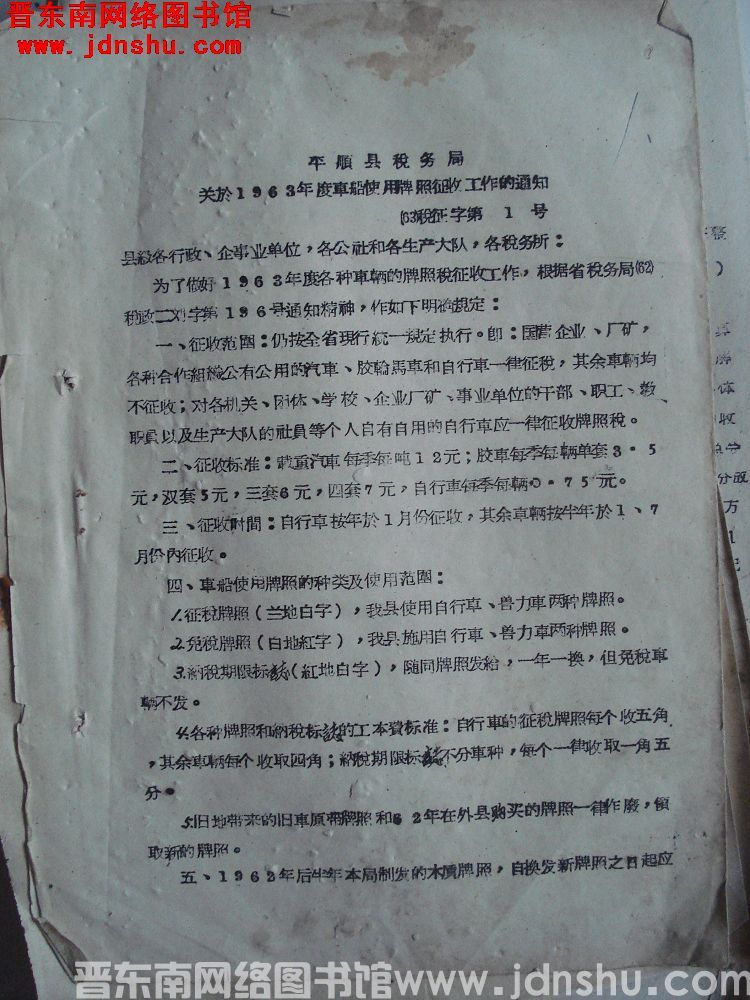 晋东南网络图书馆
www.jdnshu.com
平順县稅务局
关於1963年度車船使用牌照征收工作的通知
(63)税征字第 1 号
县級各行政、企事业单位，各公社和各生产大队，各稅务所：
为了做好1963年度各种車輛的牌照稅征收工作，根据省稅务局(62)
税政二刘字第196号通知精神，作如下明确規定：
一、征收范圍：仍按全省現行統一規定执行。卽：国营企业、厂矿，
各种合作組織公有公用的汽車、胶輪馬車和自行車一律征稅，其余車輛均
不征收；对各机关、团体、学校、企业厂矿、事业单位的干部、职工、教
职員以及生产大队的社員等个人自有自用的自行車应一律征收牌照稅。
二、征收标准：載重汽車每季每吨12元；胶車每季每辆单套3·5
元，双套5元，三套6元，四套7元，自行車每季每輛0·75元。
三、征收时間：自行車按年於1月份征收，其余車輛按半年於1、7
月份內征收。
四、車船使用牌照的种类及使用范圍：
1.征稅牌照（兰地白字），我县使用自行車、兽力車两种牌照。
2.免稅牌照（白地紅字），我县施用自行車、兽力車两种牌照。
3.納稅期限标誌（紅地白字），随同牌照发給，一年一換，但免稅車
輛不发。
4.各种牌照和納稅标誌的工本費标准：自行車的征稅牌照每个收五角
，其余車輛每个收取四角；納稅期限标誌不分車种，每个一律收取一角五
分。
5.旧地带来的旧車原带牌照和62年在外县购买的牌照一律作廢，領
取新的牌照。
五、1962年后半年本局制发的木质牌照，自換发新牌照之日起应
体
收
分
万
1
晋东南网络图书馆 www.jdnshu.com